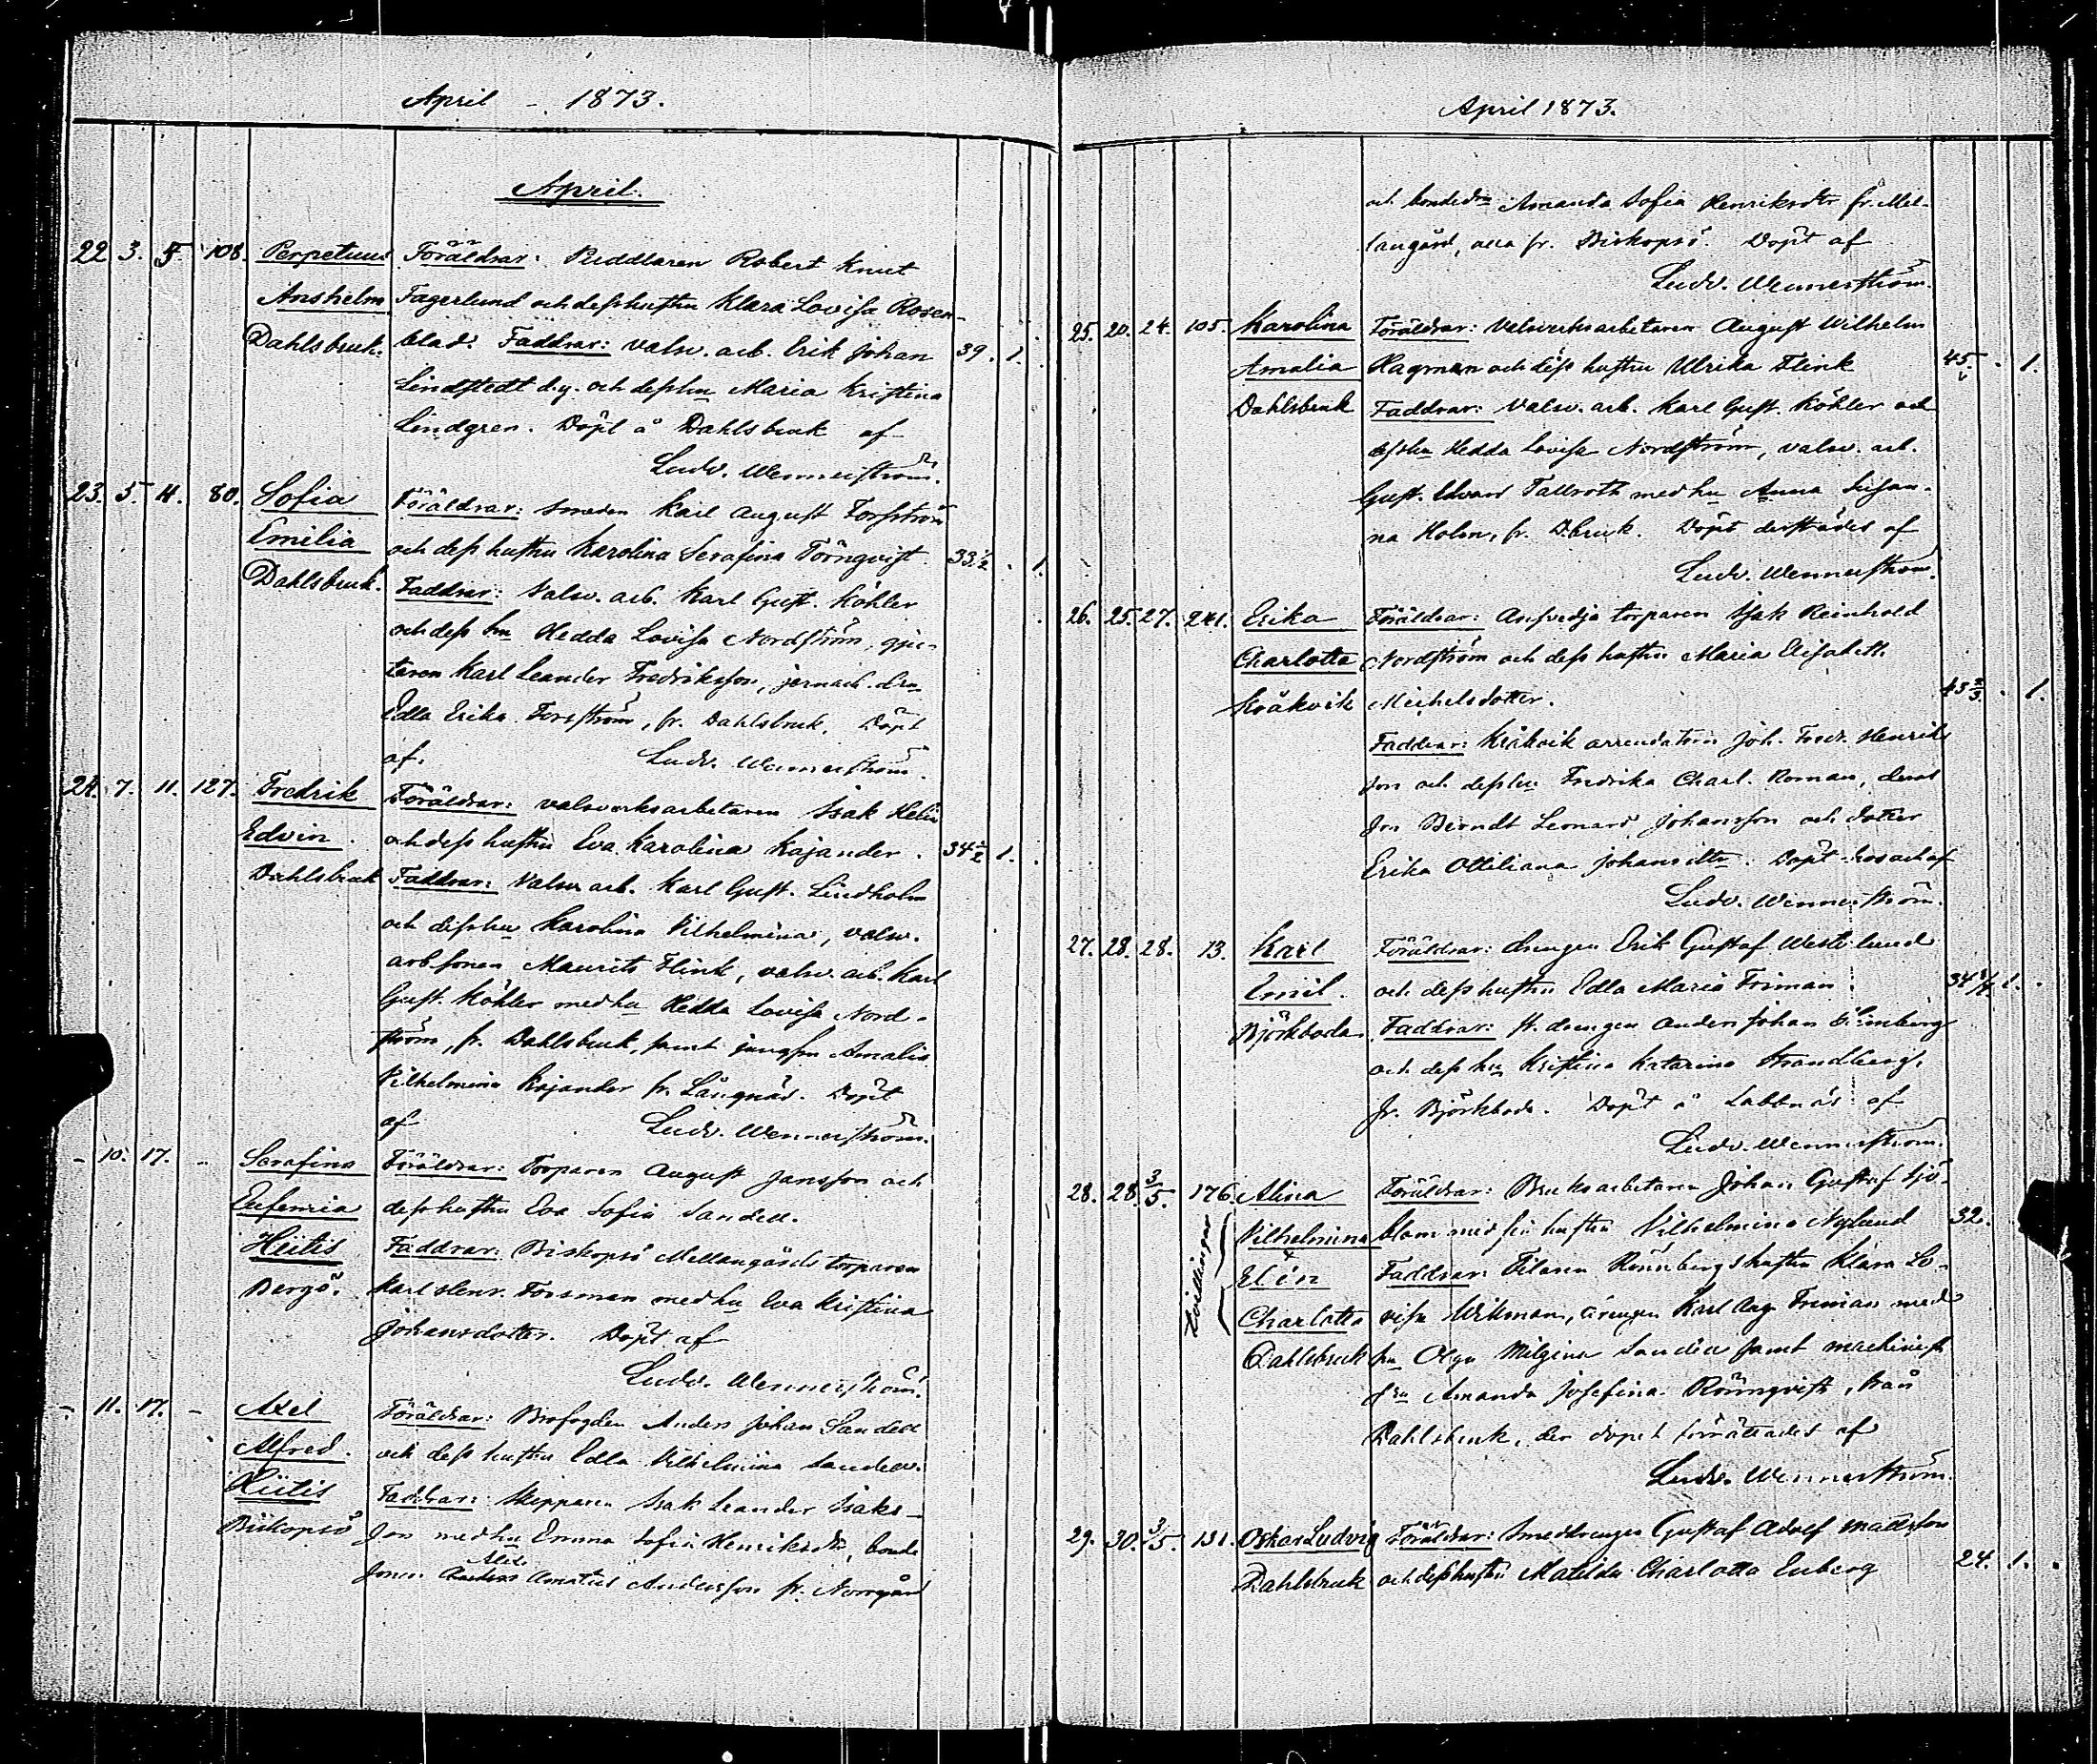 April - 1873.
April.
22 3. 5. 108. Perpetuus Föräldrar: Puddlaren Robert Knut
Anshelm Fagerlund och dess hustru Klara Lovisa Rosen-
Dahlsbruk. blad. Faddrar: valsv. arb. Erik Johan 39. 1.
Lindstedt d.y. och dess hu Maria Kristina
Lindgren. Döpt å Dahlsbruk af
Ludv. Wennerström.
23. 5. 11. 80. Sofia Föräldrar: smeden Karl August Forsström
Emilia och dess hustru Karolina Serafina Törnqvist. 33 1/2 . 1.
Dahlsbruk. Faddrar: Valsv. arb. Karl Gust. Köhler
och dess hu Hedda Lovisa Nordström, gju-
taren Karl Leander Fredriksson, jernarb. drn
Edla Erika Forsström, fr. Dahlsbruk. Döpt
af. Ludv. Wennerström.
24. 7. 11. 127. Fredrik Föräldrar: valsverksarbetaren Isak Helin
Edvin. och dess hustru Eva Karolina Kajander. 34 1/2 1.
Dahlsbruk Faddrar: Valsv. arb. Karl Gust. Lindholm
och dess hu Karolina Vilhelmina, valsv.
arb sonen Maurits Flink, valsv. arb. Karl
Gust. Köhler med hu Hedda Lovisa Nord-
ström, fr. Dahlsbruk, samt jungfru Amalia
Vilhelmina Kajander fr. Långnäs. Döpt
af Ludv. Wennerström.
- 10. 17. - Serafina Föräldrar: Torparen August Jansson och
Eufemia dess hustru Eva Sofia Sandell.
Hiitis Faddrar: Biskopsö Mellangårds torparen
Bergö. Karl Henr. Forsman med hu Eva Kristina
Johansdotter. Döpt af
Ludv. Wennerström.
- 11. 17. - Axel Föräldrar: Brofogden Anders Johan Sandell
Alfred. och dess hustru Edla Vilhelmina Sandell.
Hiitis Faddrar: Skepparen Isak Leander Isaks-
Biskopsö son med hu Emma Sofia Henriksdr, bonde
sonen Alex. Amatus Andersson fr. Norrgård
April 1873.
och bondedrn Amanda Sofia Henriksdtr fr. Mel-
langård, alla fr. Biskopsö. Döpt af
Ludv. Wennerström.
25. 20. 24. 105. Karolina Föräldrar: Valsverksarbetaren August Wilhelm
Amalia Hagman och dess hustru Ulrika Flink 45. . 1.
Dahlsbruk Faddrar: Valsv. arb. Karl Gust. Köhler och
dess hu Hedda Lovisa Nordström, valsv. arb.
Gust. Edvard Tallroth med hu Anna Susan-
na Holm, fr. D.bruk. Döpt derstädes af
Ludv. Wennerström.
26. 25. 27. 241. Erika Föräldrar: Ansvedja torparen Isak Reinhold
Charlotta Nordström och dess hustru Maria Elisabeth
Kråkvik Michelsdotter. 43 2/3 . 1.
Faddrar: Kråkvik arrendatorn Joh. Fredr. Henriks
son och dess hu Fredrika Charl. Roman, deras
son Berndt Leonard Johansson och dotter
Erika Ottiliana Johansdtr. Döpt hos och af
Ludv. Wennerström.
27. 28. 28. 13. Karl Föräldrar: drengen Erik Gustaf Westerlund
Emil. och dess hustru Edla Maria Friman. 34 3/4 1.
Björkboda Faddrar: st. drengen Anders Johan
och dess hu Kristina Katarina Strandberg,
fr. Björkboda. Döpt å Labbnäs af
Ludv. Wennerström.
28. 28. 3/5. 176. Alina Föräldrar: Bruksarbetaren Johan Gustaf Sjö-
Vilhelmina blom med sin hustru Vilhelmina Nylund 32.
& Elin Faddrar: Filaren Rönnbergs hustru Klara Lo-
Tvillingar Charlotta visa Wikman, drengen Karl Aug. Friman med
Dahlsbruk hu Olga Milgina Sandell samt machinist
drn Amanda Josefina Rönnqvist, från
Dahlsbruk, der dopet förrättades af
Ludv. Wennerström.
29. 30. 3/5. 131. Oskar Ludvig Föräldrar: Smeddrengen Gustaf Adolf Mattsson
Dahlsbruk och dess hustru Matilda Charlotta Enberg 24. 1.